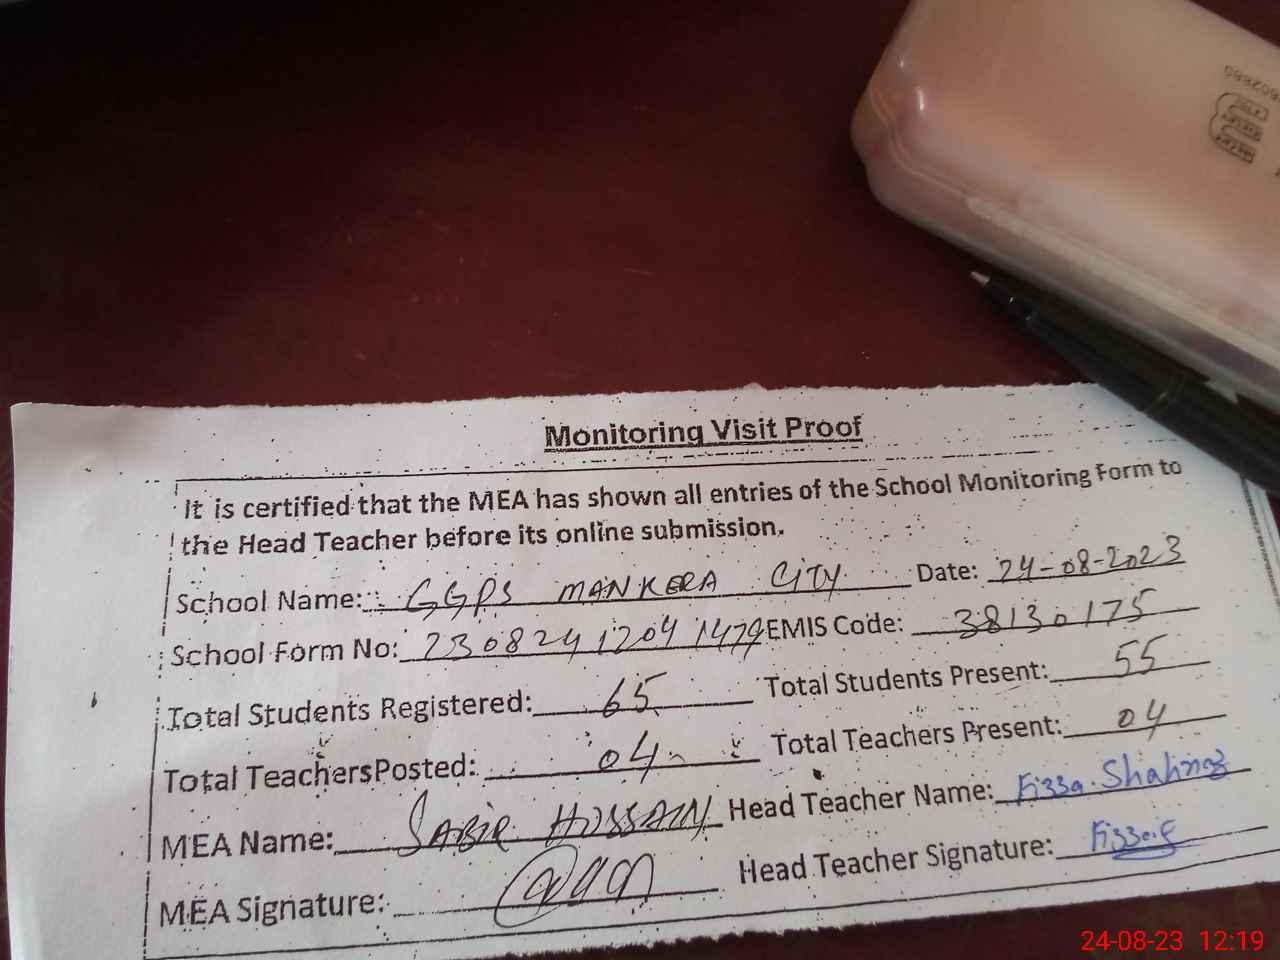 Monitoring Visit Proof
It is certified that the MEA has shown all entries of the School Monitoring Form to
the Head Teacher before its online submission.
School Name: GGPS MANKERA CITY Date: 24-08-2023
School Form No: 23082412041479 EMIS Code: 38130175
Total Students Registered: 65 Total Students Present: 55
Total Teachers Posted: 04 Total Teachers Present: 04
MEA Name: SABIR HUSSAIN Head Teacher Name: Fizza Shahnaz
MEA Signature: Head Teacher Signature:
24-08-23 12:19